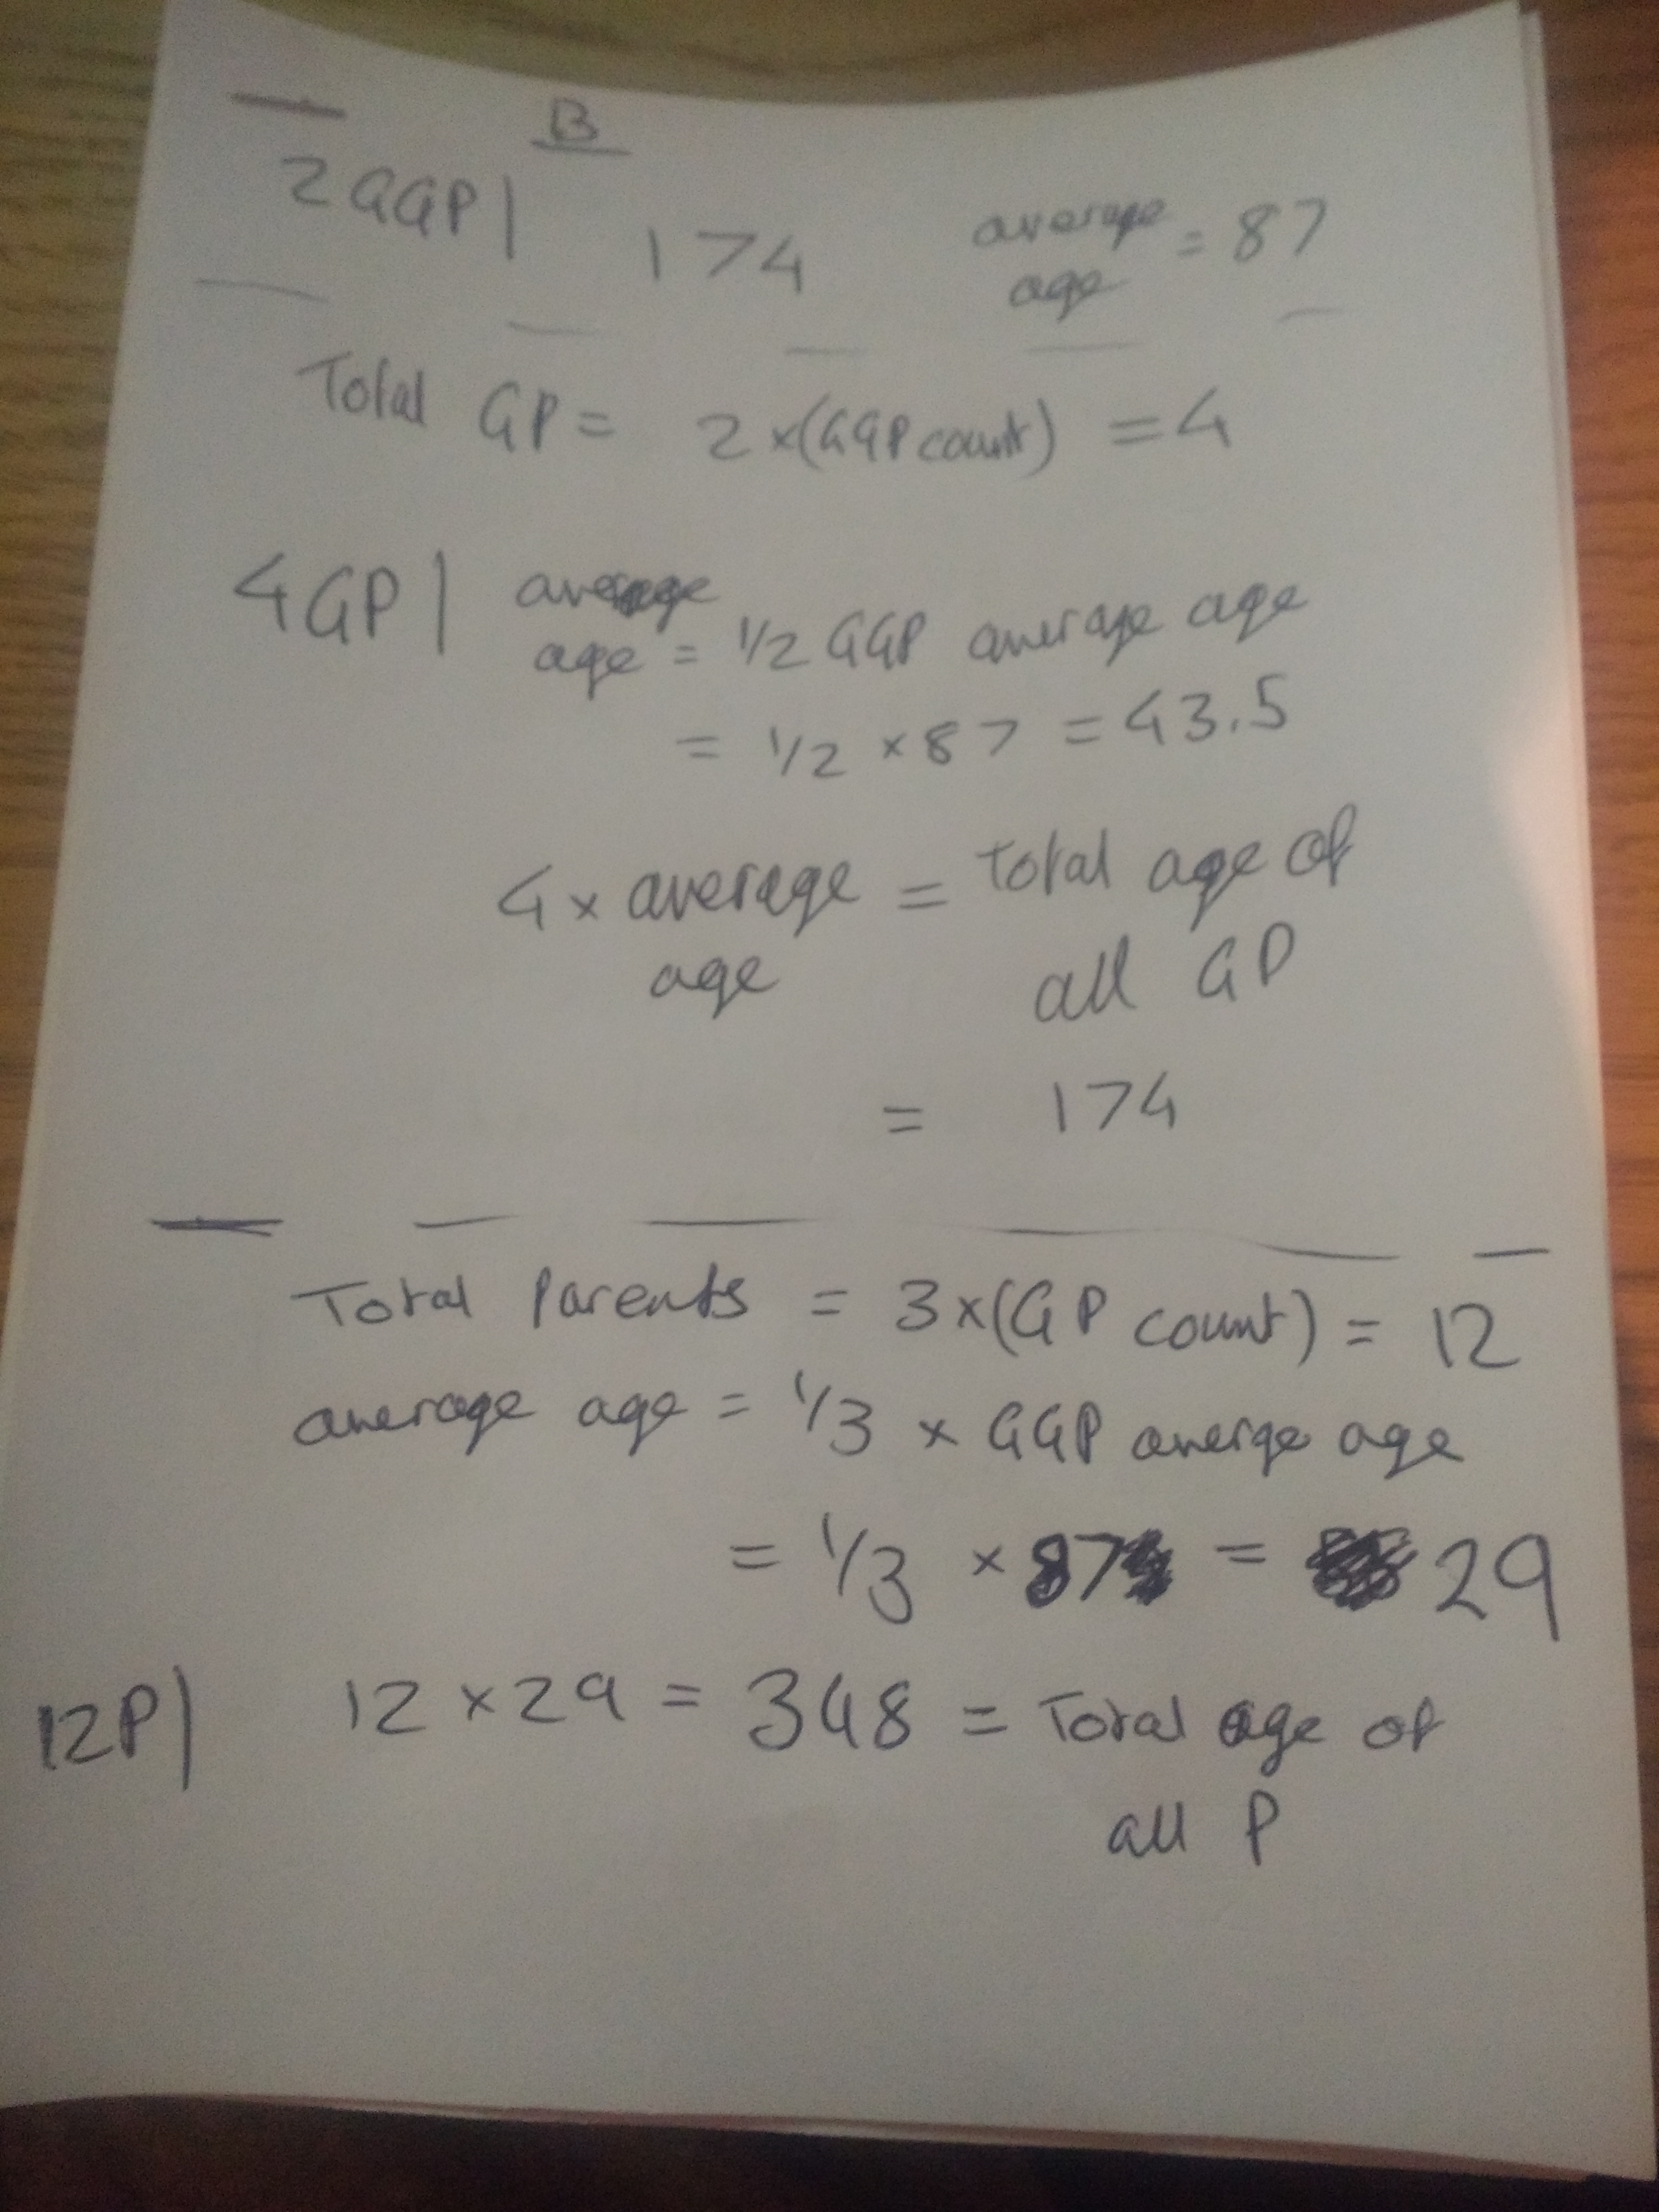 B
2GGP| 174 average age = 87
Total GP = 2 x (GGP count) = 4
4GP| average
age = 1/2 GGP average age
= 1/2 x 87 = 43.5
4 x average age = total age of
all GP
= 174
Total Parents = 3x(GP count) = 12
average age = 1/3 x GGP averge age
= 1/3 x 87 = 29
12P| 12 x 29 = 348 = Total age of
all P